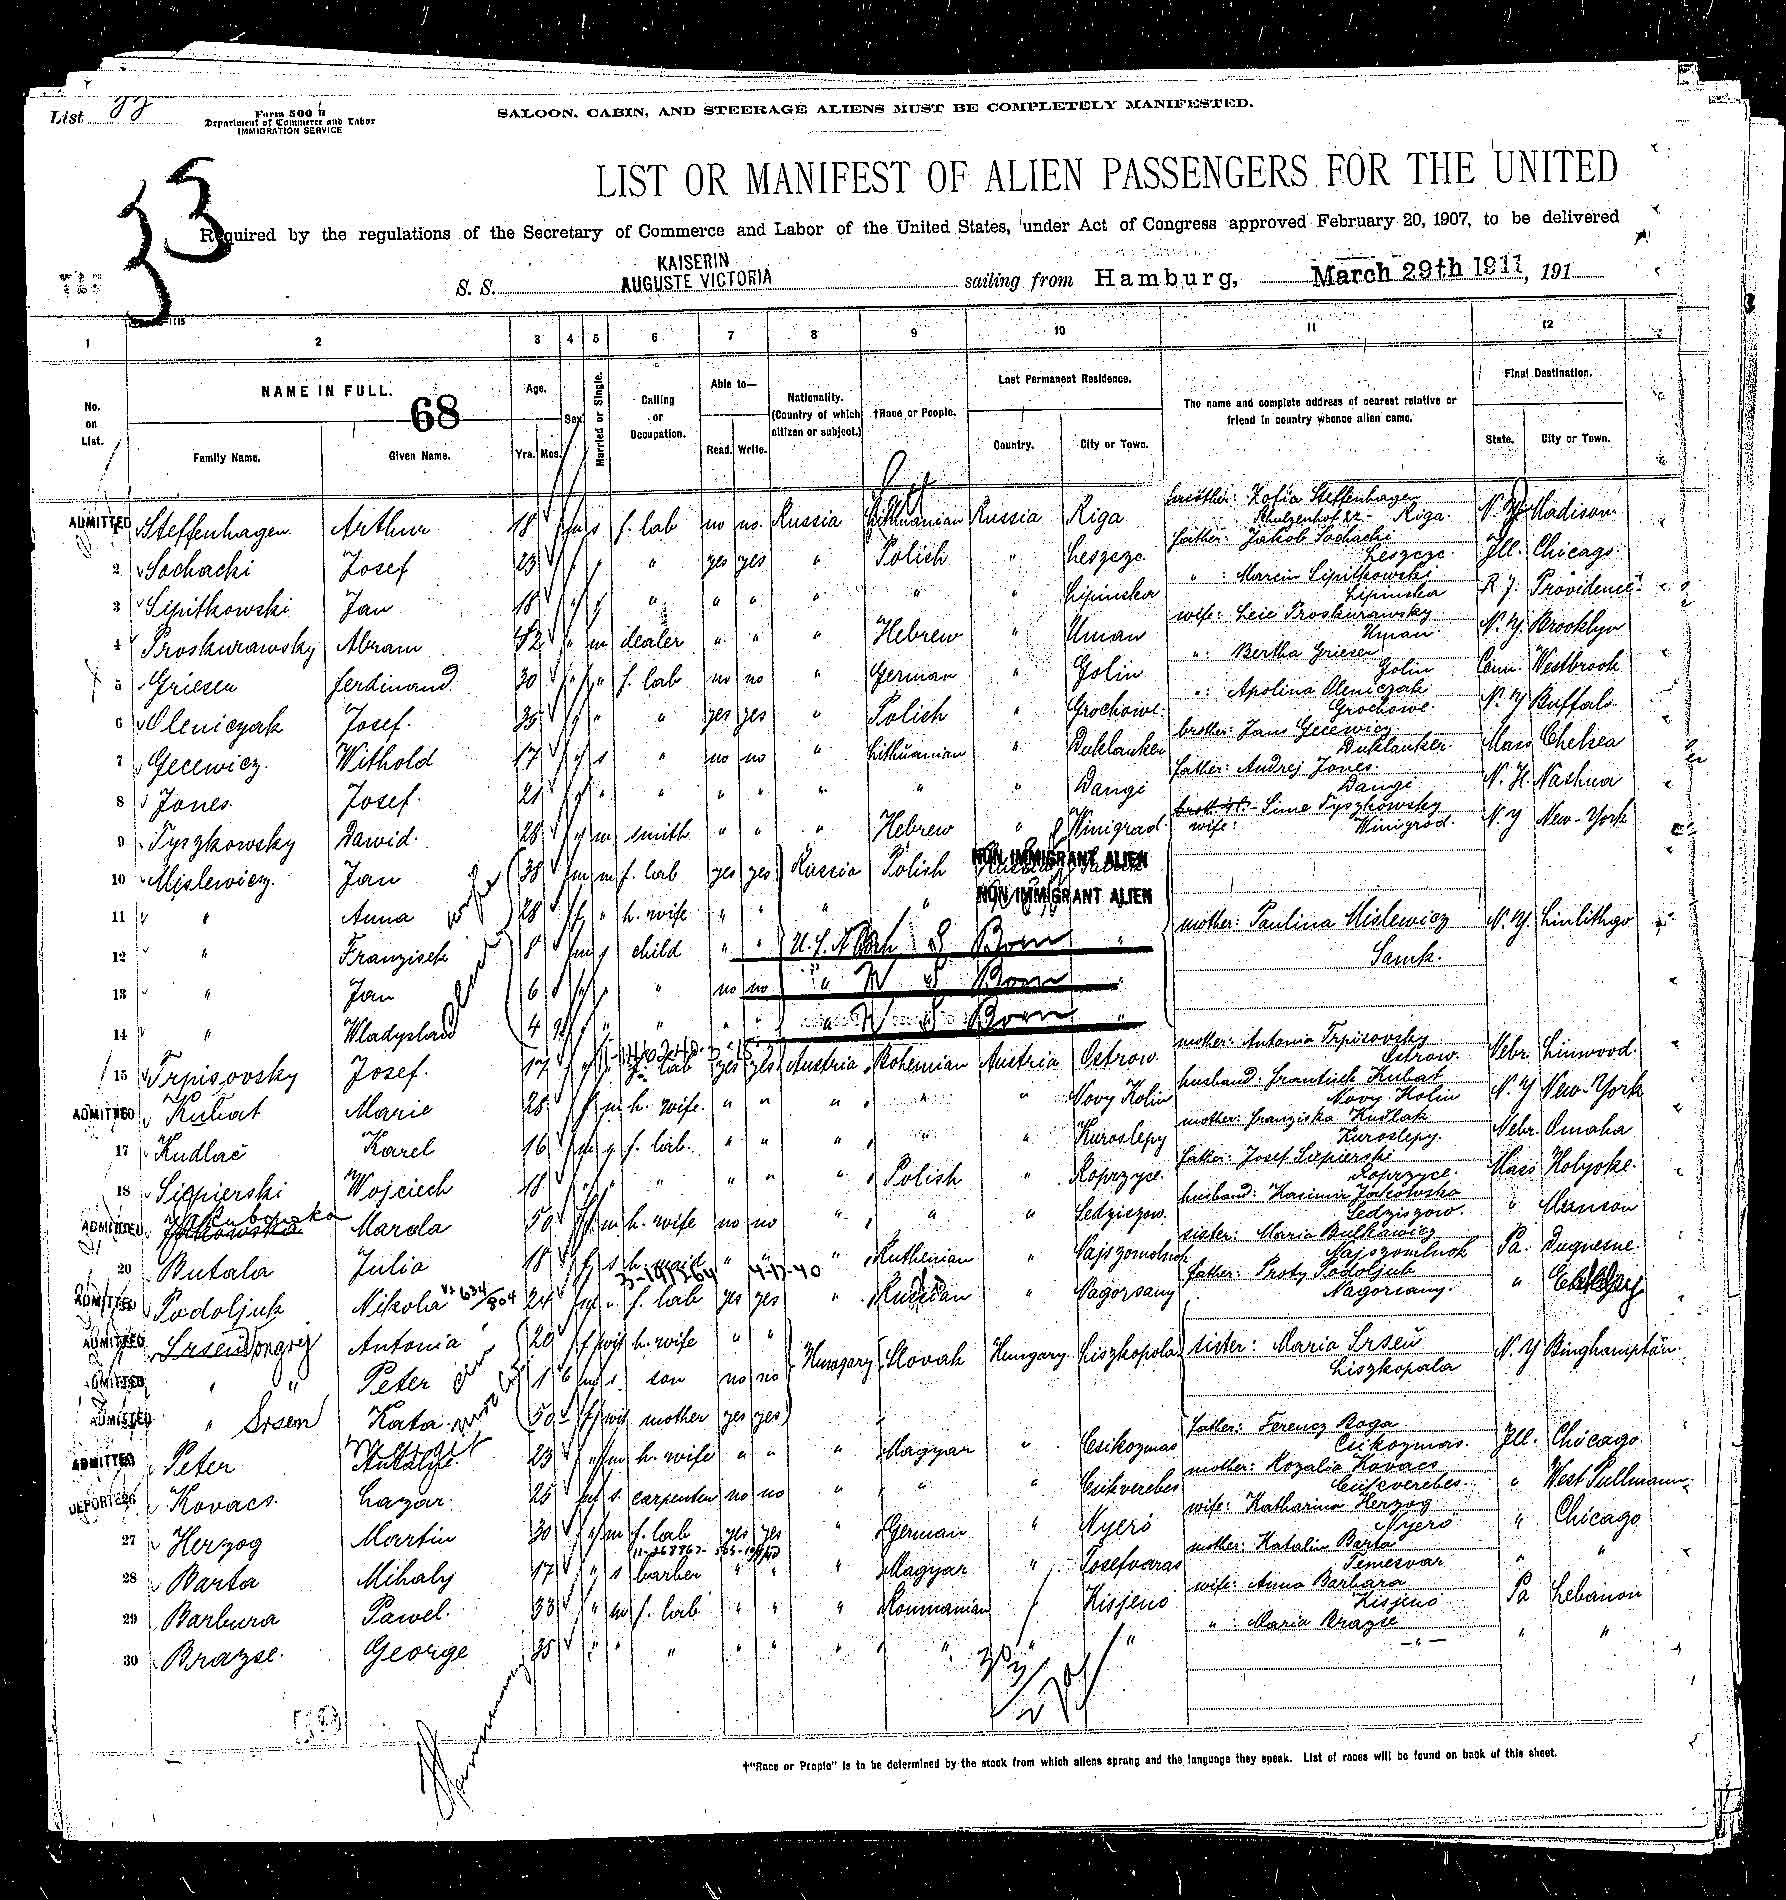 List 33
Form 500 B
Department of Commerce and Labor
IMMIGRATION SERVICE
SALOON, CABIN, AND STEERAGE ALIENS MUST BE COMPLETELY MANIFESTED.
33
LIST OR MANIFEST OF ALIEN PASSENGERS FOR THE UNITED
Required by the regulations of the Secretary of Commerce and Labor of the United States, under Act of Congress approved February 20, 1907, to be delivered
S. S. KAISERIN AUGUSTE VICTORIA sailing from Hamburg, March 29th 1911, 191
1 2 3 4 5 6 7 8 9 10 11 12
No. on List. NAME IN FULL. Family Name. Given Name. Age. Yrs. Mos. Sex. Married or Single. Calling or Occupation. Able to— Read. Write. Nationality. (Country of which citizen or subject.) †Race or People. Last Permanent Residence. Country. City or Town. The name and complete address of nearest relative or friend in country whence alien came. Final Destination. State. City or Town.
68
ADMITTED Steffenhagen Arthur 18 m s f. lab no no Russia Lithuanian Russia Riga mother: Zofia Steffenhagen Riga N.Y. Madison
2 Sochacki Josef 23 " " " yes yes " Polish " Leszcze father: Jakob Sochacki Leszcze Ill. Chicago
3 Lipitkowski Jan 18 " " " " " " " " Lipinska " : Marcin Lipitkowski Lipinska R.J. Providence
4 Proskurawsky Abram 42 " m dealer " " " Hebrew " Uman wife: Leie Proskurawsky Uman N.Y. Brooklyn
5 Griesen Ferdinand 30 " " f. lab no no " German " Golin " : Bertha Griesen Golin Conn. Westbrook
6 Oleniczak Josef 35 " " " yes yes " Polish " Grochowe " : Apolina Oleniczak Grochowe N.Y. Buffalo
7 Gecewicz Withold 17 " s " no no " Lithuanian " Duklanker brother: Jans Gecewicz Duklanker Mass Chelsea
8 Jones Josef 21 " " " " " " " " Dangi father: Andrej Jones Dangi N.H. Nashua
9 Tyszkowsky Dawid 28 " m smith " " " Hebrew " Winigrad wife: Sime Tyszkowsky Winigrod N.Y. New-York
10 Mislewicz Jan 38 m m f. lab yes yes Russia Polish NON IMMIGRANT ALIEN
11 " " Anna 28 f " h. wife " " " " NON IMMIGRANT ALIEN mother: Paulina Mislewicz N.Y. Linlithgo
12 " Franzisek 8 m s child " " U.S. Born " Samk.
13 " Jan 6 " " " no no " Born "
14 " Wladyslaw 4 " " " " " " Born "
15 Trpisovsky Josef 17 f. lab yes yes Austria Bohemian Austria Ostrow mother: Antonia Trpisovsky Ostrow Nebr. Linwood
ADMITTED Kubat Marie 28 f m h. wife " " " " " Novy Kolin husband: Frantisek Kubat Novy Kolin N.Y. New-York
17 Kudlač Karel 16 m s f. lab. " " " " " Kuroslepy mother: Franziska Kudlak Kuroslepy Nebr. Omaha
18 Siepierski Wojciech 18 " " " " " " Polish " Roprzyce father: Josef Siepierski Roprzyce Mass Holyoke
ADMITTED Marcla 50 f m h. wife no no " " " Sedziszow husband: Kasimir Sedziszow " Monson
20 Butala Julia 18 f s " " " Ruthenian " sister: Maria Pa. Duquesne
3-191264 4-17-40
ADMITTED Podoljuk Nikola 24 m " f. lab yes yes " " Nagorsany father: Proty Podoljuk Nagorsany "
ADMITTED Srsen Antonia 20 f h. wife " " Hungary Slovak Hungary Liszkopola sister: Maria Srsen Liszkopala N.Y. Binghamptan
ADMITTED " " Peter 1 6 m s. son no no
ADMITTED " Srsen Kata 50 f wit mother yes yes
ADMITTED Peter 23 " m h. wife " " " Magyar " Csikozmas father: Ferencz Boga Csikozmas Ill. Chicago
DEPORTED 26 Kovacs Lazar 25 m s. carpenter no no " " " Csikverebes mother: Rozalia Kovacs Csikverebes " West Pullmann
27 Herzog Martin 30 " m f. lab yes yes " German " Nyerö wife: Katharina Herzog Nyerö " Chicago
28 Barta Mihaly 17 " s barber " " " Magyar " Josefvaras mother: Katalin Barta Temesvar " "
29 Barbura Pawel 33 " m f. lab " " " Roumanian Kisjenö wife: Anna Barbara Kisjenö Pa Lebanon
30 Brazse George 35 " " " " " " " " " " : Maria Brazse —"— " "
†"Race or People" is to be determined by the stock from which aliens sprang and the language they speak. List of races will be found on back of this sheet.